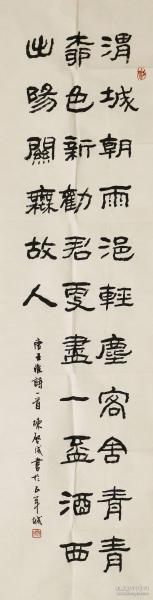 渭城朝雨浥輕塵客舍青青
柳色新勸君更盡一盃酒西
出陽關無故人
唐王維詩一首 陳啓成書於五羊城